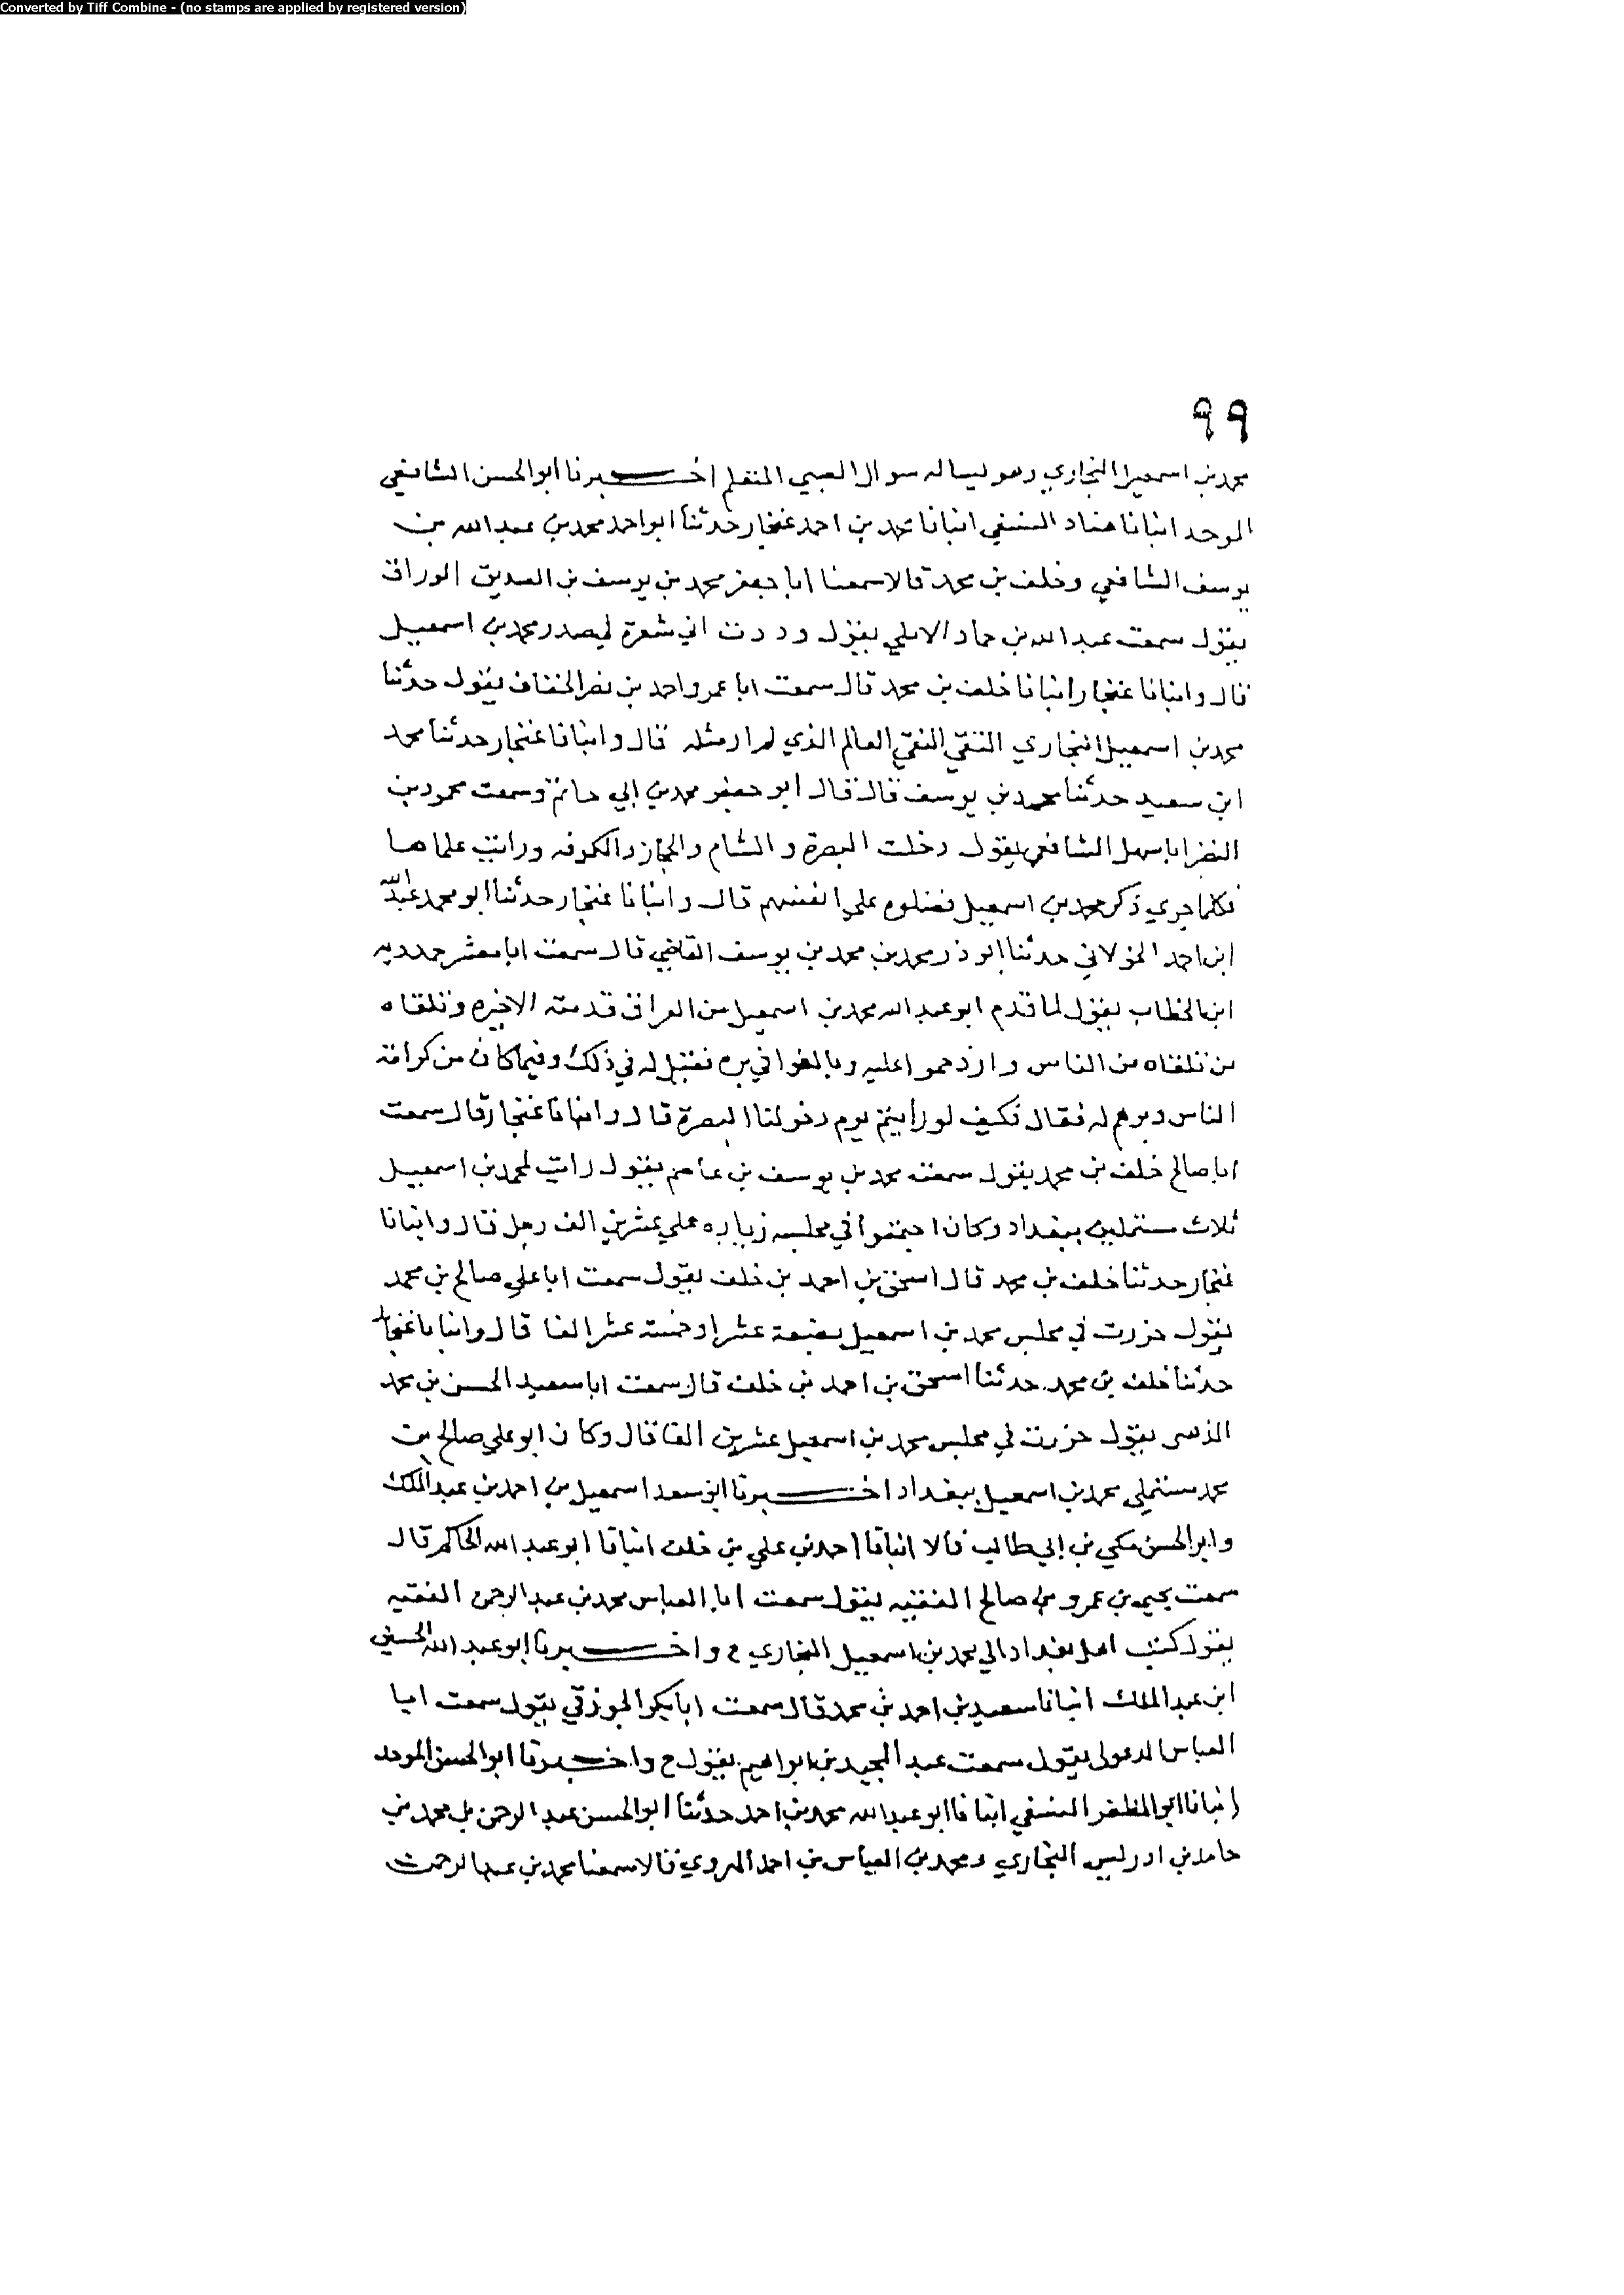 Converted by Tiff Combine - (no stamps are applied by registered version)
٩٩
محمد بن اسمعيل البخاري وهو ليساله سوال الصبي المتعلم اخـــبرنا ابو الحسن الشافعي
الموحد انبانا هناد النسفي انبانا محمد بن احمد غنجار حدثنا ابو احمد محمد بن عبد الله بن
يوسف الشافعي وخلف بن محمد قالا سمعنا ابا جعفر محمد بن يوسف بن الصديق الوراق
يقول سمعت عبد الله بن حماد الاملي يقول وددت اني شعرة في صدر محمد بن اسمعيل
قال وانبانا غنجار انبانا خلف بن محمد قال سمعت ابا عمرو احمد بن نصر الخفاف يقول حدثنا
محمد بن اسمعيل البخاري التقي النقي العالم الذي لم ار مثله قال وانبانا غنجار حدثنا محمد
ابن سعيد حدثنا محمد بن يوسف قال قال ابو جعفر محمد بن ابي حاتم وسمعت محمود بن
النضر ابا سهل الشافعي يقول دخلت البصرة والشام والحجاز والكوفه ورايت علماها
فكلما جري ذكر محمد بن اسمعيل فضلوه علي انفسهم قال وانبانا غنجار حدثنا ابو محمد عبد الله
ابن احمد الخولاني حدثنا ابو ذر محمد بن محمد بن يوسف القاضي قال سمعت ابا معشر حمدويه
ابن الخطاب يقول لما قدم ابو عبد الله محمد بن اسمعيل من العراق قدمته الاخيره وتلقاه
من تلقاه من الناس وازدحموا عليه وبالغوا في بره فقيل له في ذلك وفيما كان من كرامة
الناس وبرهم له فقال فكيف لو رأيتم يوم دخولنا البصرة قال وانبانا غنجار قال سمعت
ابا صالح خلف بن محمد يقول سمعت محمد بن يوسف بن عاصم يقول رايت لمحمد بن اسمعيل
ثلاث مستملين ببغداد وكان اجتمعوا في مجلسه زياده علي عشرين الف رجل قال وانبانا
غنجار حدثنا خلف بن محمد قال اسحق بن احمد بن خلف يقول سمعت ابا علي صالح بن محمد
يقول حزرت في مجلس محمد بن اسمعيل بضعة عشر او خمسة عشر الفا قال وانبانا غنجار
حدثنا خلف بن محمد حدثنا اسحق بن احمد بن خلف قال سمعت ابا سعيد الحسن بن محمد
يقول حزرت في مجلس محمد بن اسمعيل عشرين الفا قال وكان ابو علي صالح بن
محمد مستملي محمد بن اسمعيل ببغداد اخـــبرنا ابو سعد اسمعيل بن احمد بن عبد الملك
وابو الحسن مكي بن ابي طالب قالا انبانا احمد بن علي بن خلف انبانا ابو عبد الله الحاكم قال
سمعت يحيي بن عمرو بن صالح الفقيه يقول سمعت ابا العباس محمد بن عبد الرحمن الفقيه
يقول كتب اهل بغداد الي محمد بن اسمعيل البخاري ح واخـــبرنا ابو عبد الله الحسين
ابن عبد الملك انبانا سعيد بن احمد بن محمد قال سمعت ابا بكر الجوزقي يقول سمعت ابا
العباس الدغولي يقول سمعت عبد المجيد بن ابراهيم يقول ح واخـــبرنا ابو الحسن الموحد
انبانا ابو المظفر النسفي انبانا ابو عبد الله محمد بن احمد حدثنا ابو الحسن عبد الرحمن بن محمد بن
حامد بن ادريس البخاري ومحمد بن العباس بن احمد الهروي قالا سمعنا محمد بن عبد الرحمن